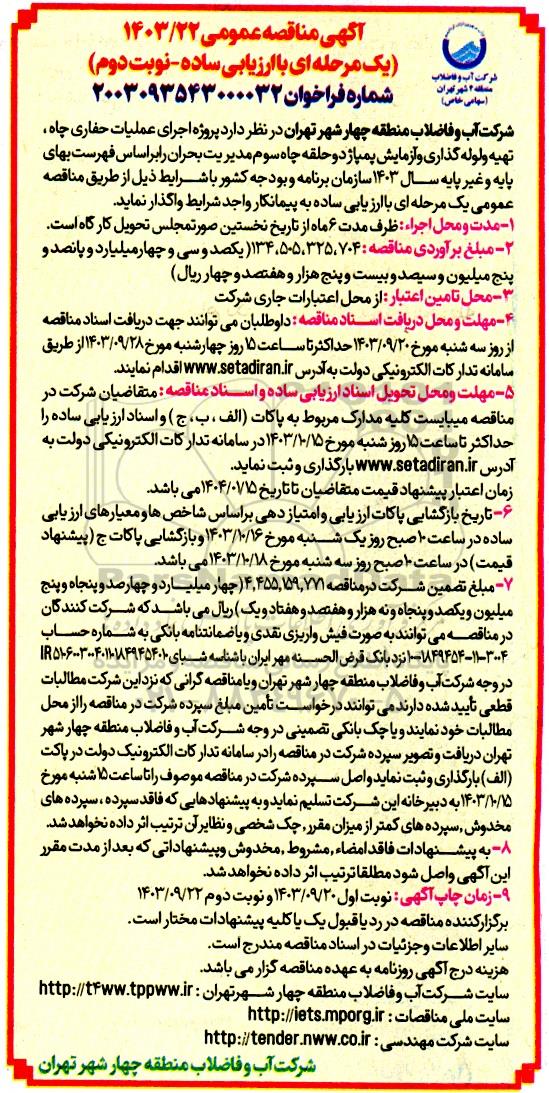 آگهی مناقصه عمومی ۱۴۰۳/۲۲
(یک مرحله ای با ارزیابی ساده - نوبت دوم)
شماره فراخوان ۲۰۰۳۰۹۳۵۴۳۰۰۰۰۳۲
شرکت آب و فاضلاب
منطقه ۴ شهر تهران
(سهامی خاص)
شرکت آب و فاضلاب منطقه چهار شهر تهران در نظر دارد پروژه اجرای عملیات حفاری چاه ،
تهیه و لوله گذاری و آزمایش پمپاژ دو حلقه چاه سوم مدیریت بحران را براساس فهرست بهای
پایه و غیر پایه سال ۱۴۰۳ سازمان برنامه و بودجه کشور با شرایط ذیل از طریق مناقصه
عمومی یک مرحله ای با ارزیابی ساده به پیمانکار واجد شرایط واگذار نماید.
۱- مدت و محل اجراء : ظرف مدت ۶ ماه از تاریخ نخستین صورتمجلس تحویل کارگاه است.
۲- مبلغ برآوردی مناقصه : ۱۳۴،۵۰۵،۳۲۵،۷۰۴ (یکصد و سی و چهار میلیارد و پانصد و
پنج میلیون و سیصد و بیست و پنج هزار و هفتصد و چهار ریال)
۳- محل تامین اعتبار : از محل اعتبارات جاری شرکت
۴- مهلت و محل دریافت اسناد مناقصه : داوطلبان می توانند جهت دریافت اسناد مناقصه
از روز سه شنبه مورخ ۱۴۰۳/۰۹/۲۰ حداکثر تا ساعت ۱۵ روز چهارشنبه مورخ ۱۴۰۳/۰۹/۲۸ از طریق
سامانه تدارکات الکترونیکی دولت به آدرس www.setadiran.ir اقدام نمایند.
۵- مهلت و محل تحویل اسناد ارزیابی ساده و اسناد مناقصه : متقاضیان شرکت در
مناقصه میبایست کلیه مدارک مربوط به پاکات (الف ، ب، ج) و اسناد ارزیابی ساده را
حداکثر تا ساعت ۱۵ روز شنبه مورخ ۱۴۰۳/۱۰/۱۵ در سامانه تدارکات الکترونیکی دولت به
آدرس www.setadiran.ir بارگذاری و ثبت نماید.
زمان اعتبار پیشنهاد قیمت متقاضیان تا تاریخ ۱۴۰۴/۰۱/۱۵ می باشد.
۶- تاریخ بازگشایی پاکات ارزیابی و امتیاز دهی براساس شاخص ها و معیارهای ارزیابی
ساده در ساعت ۱۰ صبح روز یک شنبه مورخ ۱۴۰۳/۱۰/۱۶ و بازگشایی پاکات ج (پیشنهاد
قیمت) در ساعت ۱۰ صبح روز سه شنبه مورخ ۱۴۰۳/۱۰/۱۸ می باشد.
۷- مبلغ تضمین شرکت در مناقصه ۴،۴۵۵،۱۵۹،۷۷۱ (چهار میلیارد و چهارصد و پنجاه و پنج
میلیون و یکصد و پنجاه و نه هزار و هفتصد و هفتاد و یک) ریال می باشد که شرکت کنندگان
در مناقصه می توانند به صورت فیش واریزی نقدی و یا ضمانتنامه بانکی به شماره حساب
نزد بانک قرض الحسنه مهر ایران با شناسه شبای
در وجه شرکت آب و فاضلاب منطقه چهار شهر تهران و یا مناقصه گرانی که نزد این شرکت مطالبات
قطعی تأیید شده دارند می توانند درخواست تأمین مبلغ سپرده شرکت در مناقصه را از محل
مطالبات خود نمایند و یا چک بانکی تضمینی در وجه شرکت آب و فاضلاب منطقه چهار شهر
تهران دریافت و تصویر سپرده شرکت در مناقصه را در سامانه تدارکات الکترونیک دولت در پاکت
(الف) بارگذاری و ثبت نماید و اصل سپرده شرکت در مناقصه موصوف را تا ساعت ۱۵ شنبه مورخ
۱۴۰۳/۱۰/۱۵ به دبیرخانه این شرکت تسلیم نماید و به پیشنهادهایی که فاقد سپرده ، سپرده های
مخدوش , سپرده های کمتر از میزان مقرر , چک شخصی و نظایر آن ترتیب اثر داده نخواهد شد.
۸- به پیشنهادات فاقد امضاء , مشروط , مخدوش و پیشنهاداتی که بعد از مدت مقرر
این آگهی واصل شود مطلقا ترتیب اثر داده نخواهد شد.
۹- زمان چاپ آگهی : نوبت اول ۱۴۰۳/۰۹/۲۰ و نوبت دوم ۱۴۰۳/۰۹/۲۲
برگزارکننده مناقصه در رد یا قبول یک یا کلیه پیشنهادات مختار است.
سایر اطلاعات و جزئیات در اسناد مناقصه مندرج است.
هزینه درج آگهی روزنامه به عهده مناقصه گزار می باشد.
سایت شرکت آب و فاضلاب منطقه چهار شهر تهران : http://t4ww.tppww.ir
سایت ملی مناقصات : http://iets.mporg.ir
سایت شرکت مهندسی : http://tender.nww.co.ir
شرکت آب و فاضلاب منطقه چهار شهر تهران